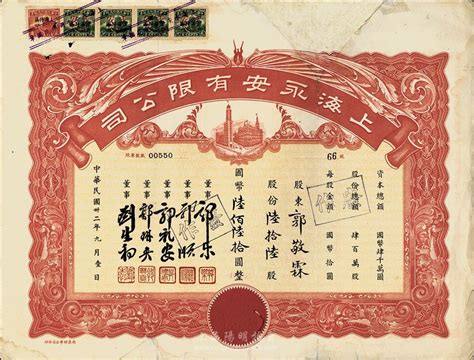 上海永安有限公司
00550
66
資本總額 國幣肆千萬圓
股份總額 肆百萬股
每股金額 國幣拾圓
股東 郭敬霖
股份 陸拾陸 股
國幣 陸佰陸拾 圓整
董事 郭樂
董事 郭順
董事
董事 郭琳爽
董事 劉生初
中華民國卅二年九月壹日